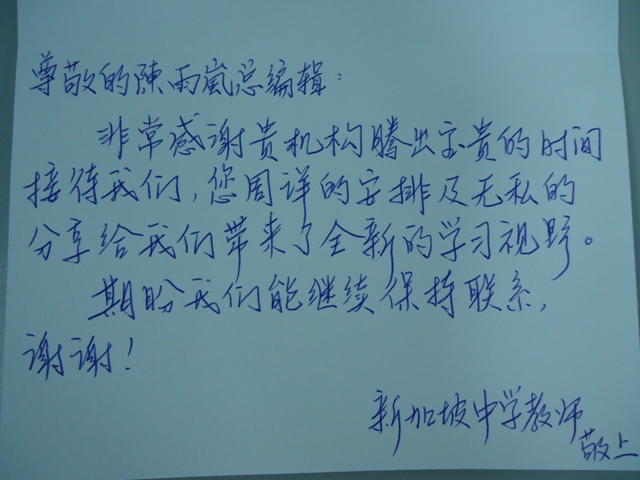 尊敬的陳雨嵐总编辑：
非常感谢贵机构腾出宝贵的时间
接待我们，您周详的安排及无私的
分享给我们带来了全新的学习视野。
期盼我们能继续保持联系，
谢谢！
新加坡中学教师
敬上